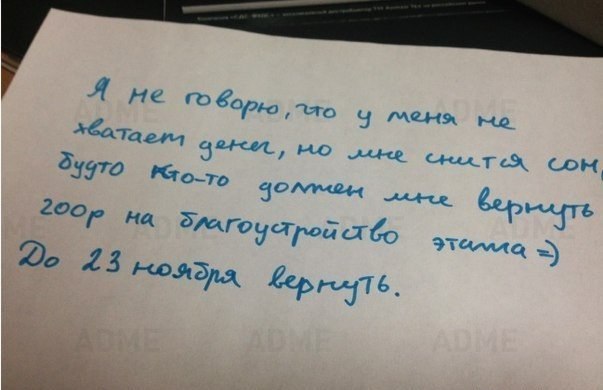 Я не говорю, что у меня не
хватает денег, но мне снится сон,
будто кто-то должен мне вернуть
200р на благоустройство этажа =)
До 23 ноября вернуть.
ADME
ADME
ADME
ADME
ADME